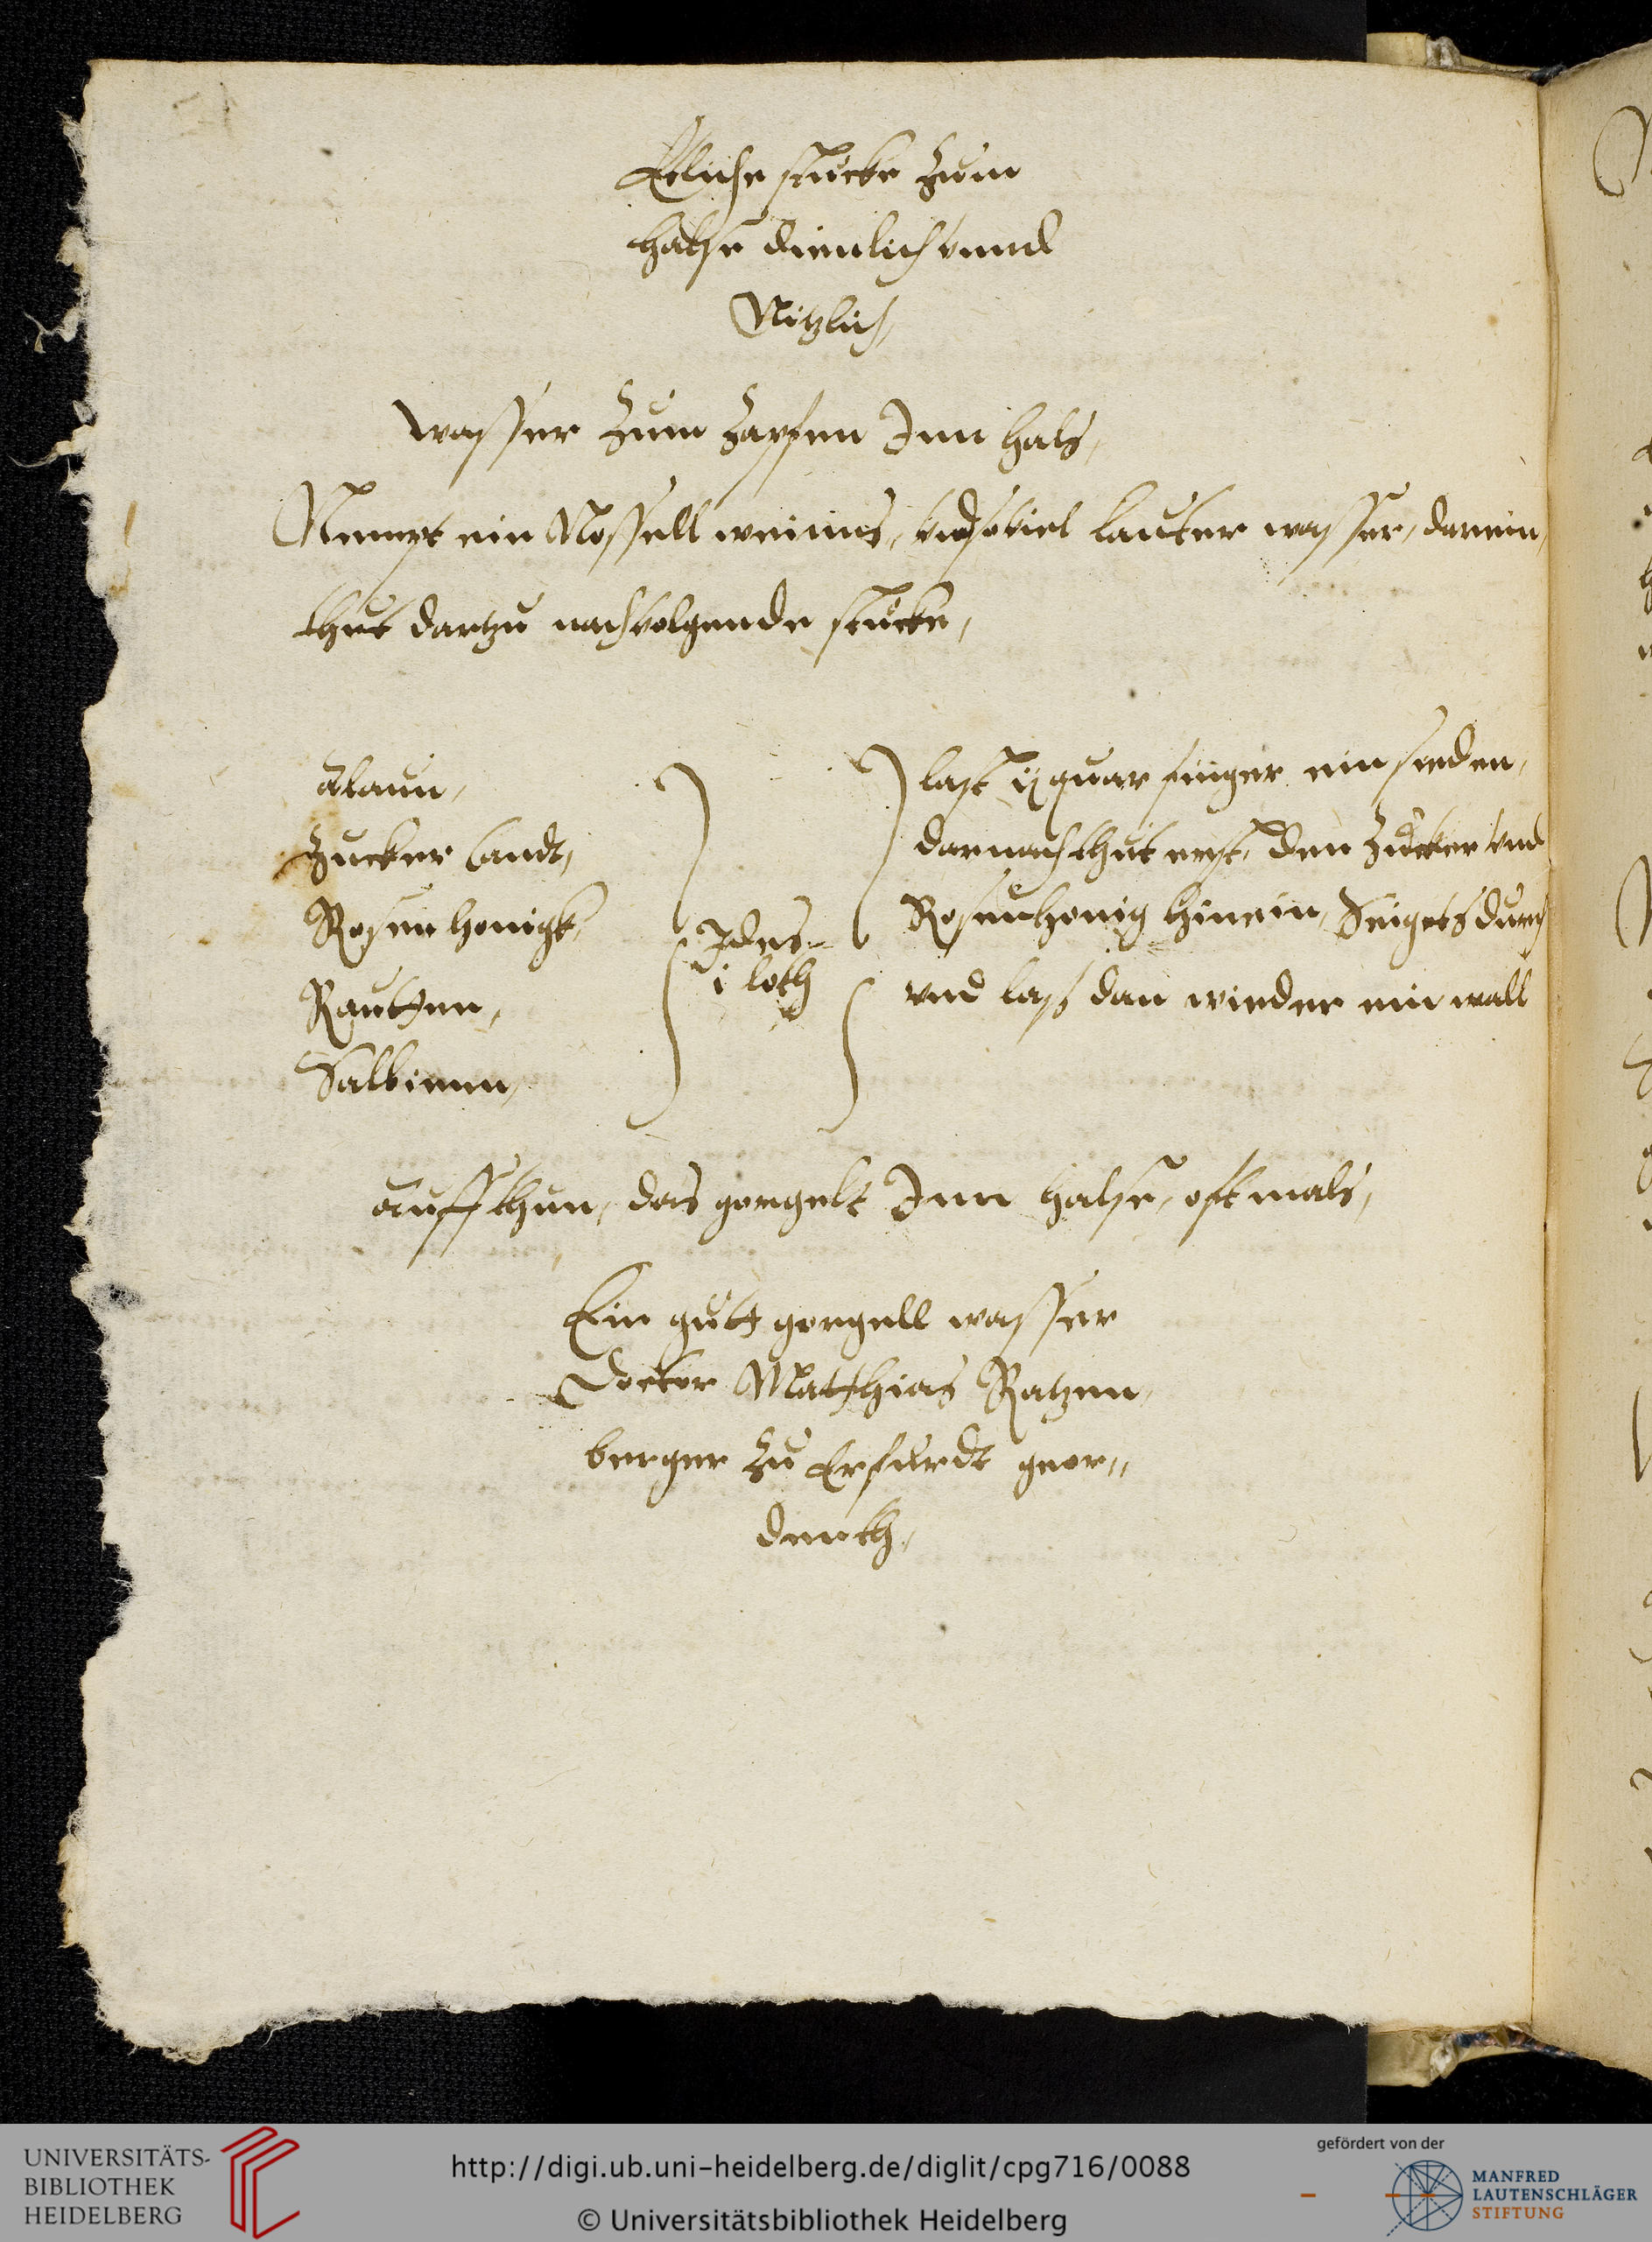 Etliche stucke zum
halse dienlich vnnd
Nitzlich,
wasser zum Zapfen Inn hals,
Nempt ein Nossell weines, vnd souiel lauter wasser, darein,
thut dartzu nachuolgende stucke,
Alaun,
Zucker Candt,
Rosen honigk,
Rautten,
Salbienn,
Ides
i loth
last ij quer finger ein sieden,
darnach thut erst, den Zucker vnd
Rosenhonig hinein, Seigets durch
vnd lass dan wieder ein wall
auff thun, das gorgelt Inn halse, oftmals,
Ein gutt gorgell wasser
Doctor Matthias Ratzen,
berger zu Erfurdt geor„
denth,
UNIVERSITÄTS-
BIBLIOTHEK
HEIDELBERG
http://digi.ub.uni-heidelberg.de/diglit/cpg716/0088
© Universitätsbibliothek Heidelberg
gefördert von der
MANFRED
LAUTENSCHLÄGER
STIFTUNG